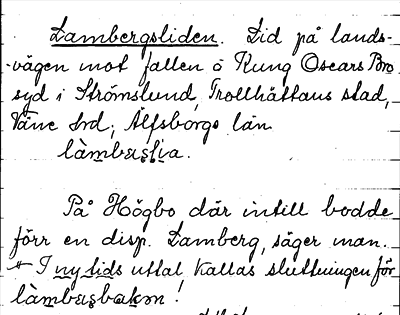 Lambergsliden. Lid på lands-
-vägen mot fallen o Kung Oscars Bro
syd i Strömslund, Trollhättans stad,
Väne hrd; Älfsborgs län
làmbæsl̥ia.
På Högbo där intill bodde
förr en disp. Lamberg, säger man.
* I ny tids uttal kallas sluttningen för
làmbæsbakm!